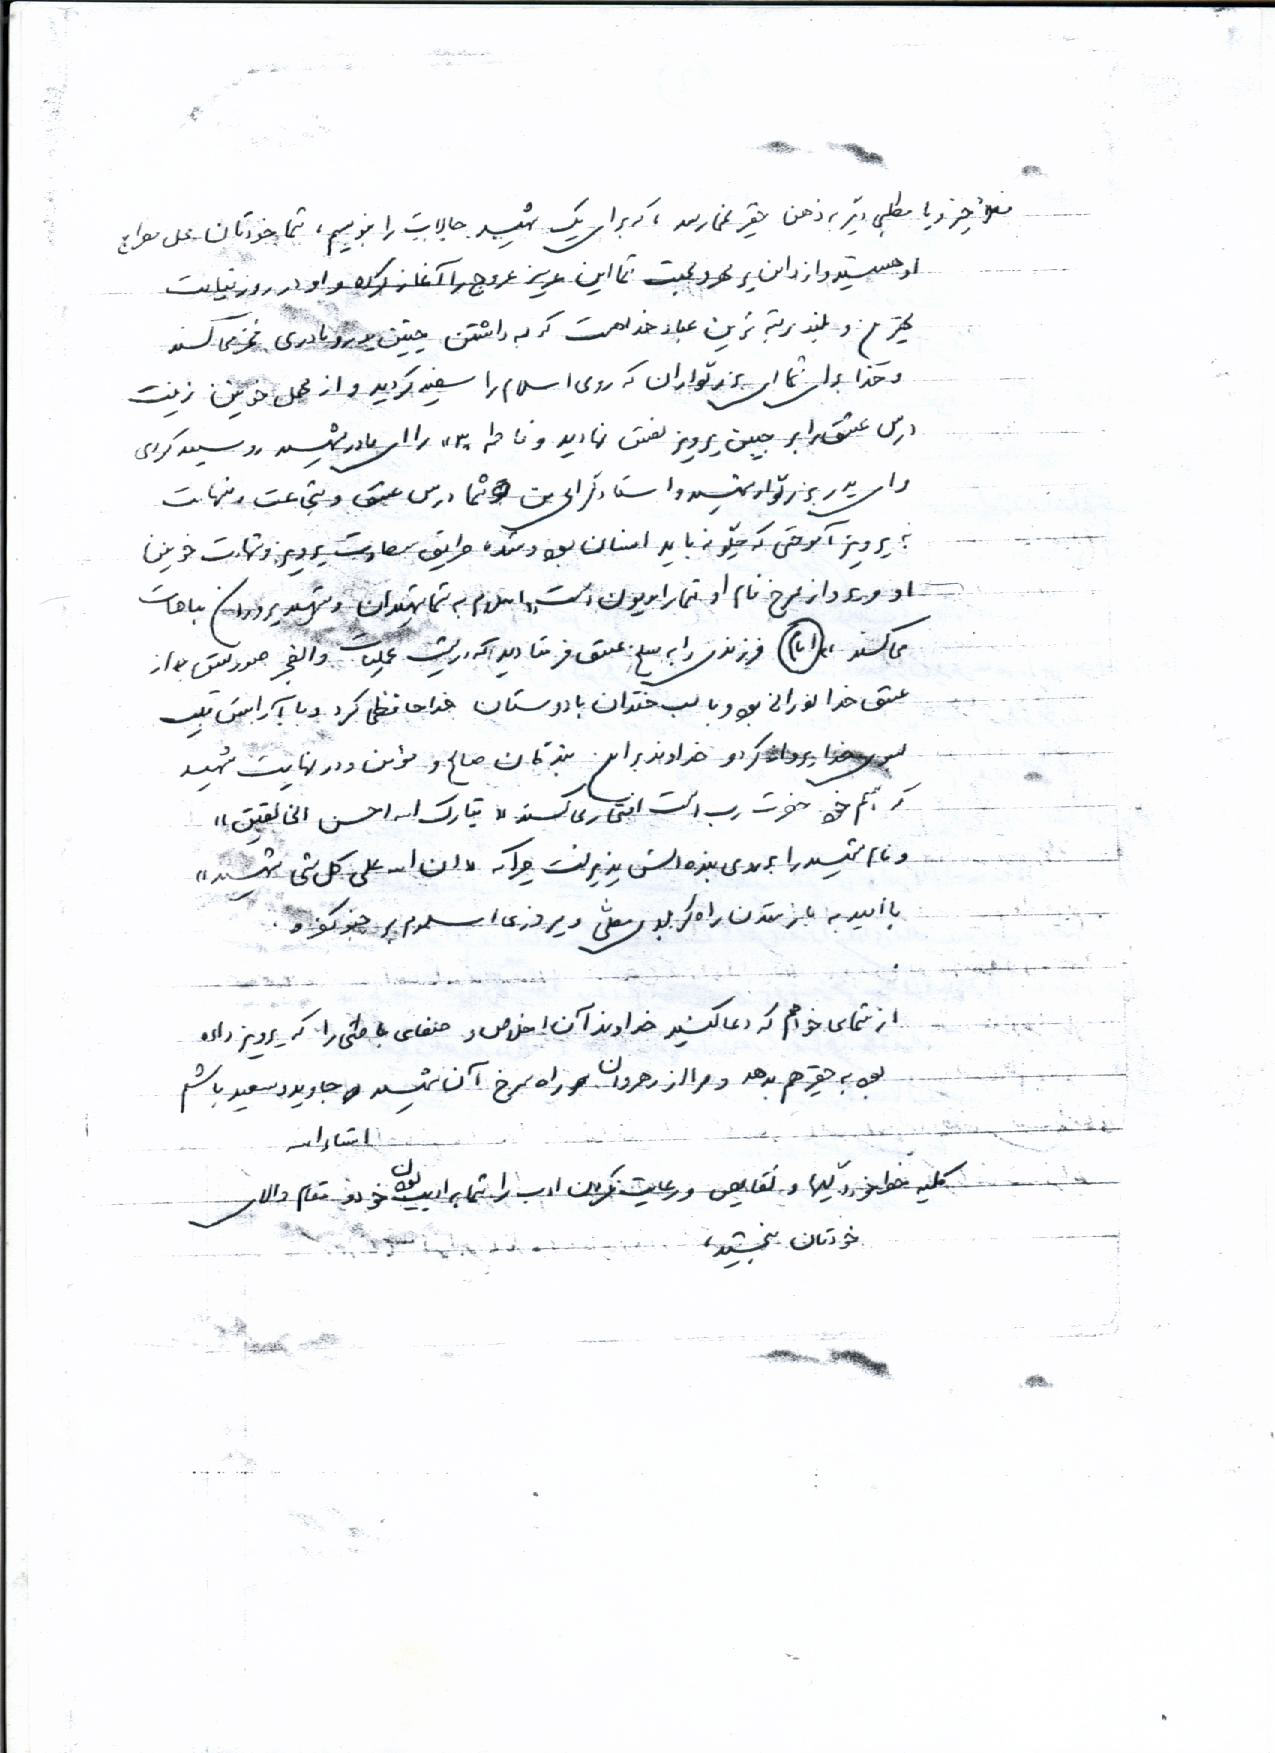 چیز و یا مطلبی دیگر به ذهن حقیر نمی‌رسد، که برای یک شهید جالب را بنویسم، شما خودتان محل معراج
او هستید و از دامن پر مهر و محبت شما این عزیز عروج را آغاز کرد و او در روز قیامت
و بلند مرتبه ترین عباد خداست که به داشتن چنین پدر و مادری فخر می کند
و خدا برای شما ای بزرگواران که روی اسلام را سفید کردید و از خونین زینت
درس عشق را بر جبین پرویز نقش نهادید و فاطمه «س» را ای مادر شهید رو سپید کردی
و ای پدر بزرگوار شهید و استاد گرامی من شما درس عشق و شجاعت و شهامت
به پرویز آموختی که چگونه باید انسان بود و شد، سعادت پرویز و شهادت خونین
او و سرخ فام او شما را مدیون است، اسلام به شما شهیدان و شهید پروران مباهات
می کند «امام» فرزندی را به عشق فرستادید که در شب عملیات والفجر صورتش از
عشق خدا نورانی بود و با لب خندان با دوستان خداحافظی کرد و با آرامش قلب
بسوی خدا پرواز کرد و خداوند بر این بندگان صالح و مؤمن و در نهایت شهید
که اسم خود حضرت رب است افتخار می کند «تبارک الله احسن الخالقین»
و نام شهید را برای بنده اش پذیرفت چرا که «ان الله علی کل شی شهید»
با امید به باز شدن راه کربلای معلی و پیروزی اسلام بر جبهه کفر و
از شما می خواهم که دعا کنید خداوند آن اخلاص و صفای باطنی را که پرویز داده
بود به حقیر هم بدهد و مرا از رهروان راه سرخ آن شهید جاوید و سعید باشم
انشاءالله
کلیه خط خوردگیها و نقایص و رعایت نکردن ادب را شما بر ادیب بودن خود و مقام والای
خودتان ببخشید،